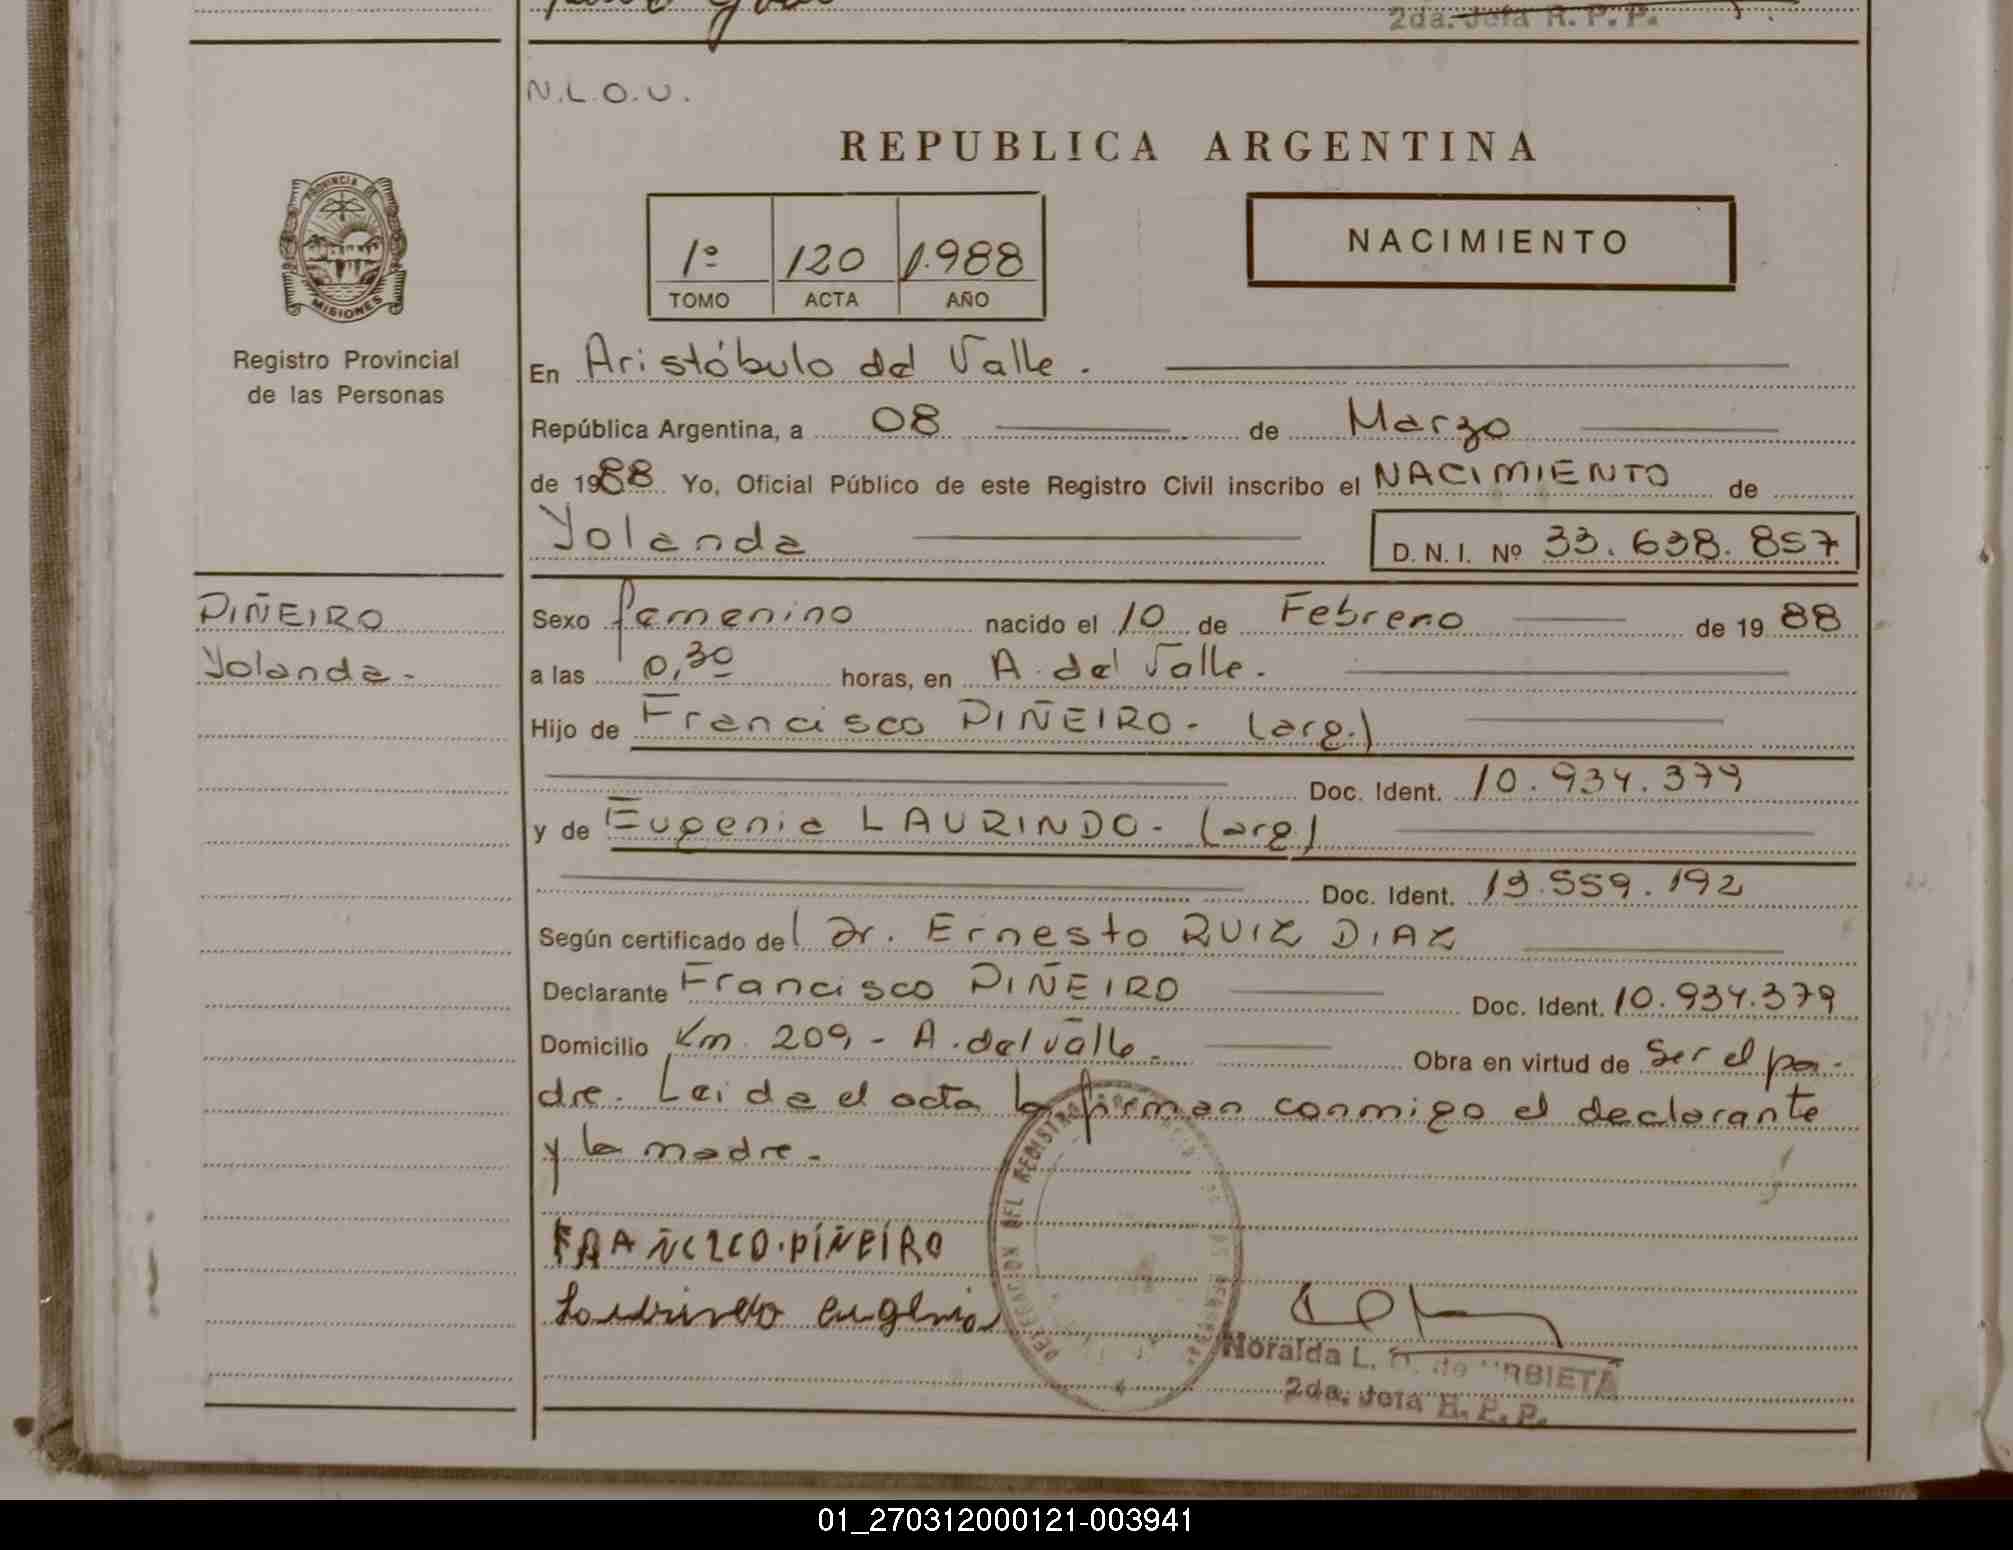 2da. Jefa R. P. P.
N.L.O.U.
REPUBLICA ARGENTINA
PROVINCIA DE
MISIONES
1º 120 1.988
TOMO ACTA AÑO
NACIMIENTO
Registro Provincial
de las Personas
En Aristóbulo del Valle.
República Argentina, a 08 de Marzo
de 1988 Yo, Oficial Público de este Registro Civil inscribo el NACIMIENTO de
Yolanda D. N. I. Nº 33.638.857
PIÑEIRO
Yolanda-
Sexo femenino nacido el 10 de Febrero de 19 88
a las 0,30 horas, en A. del Valle.
Hijo de Francisco PIÑEIRO- (arg.)
Doc. Ident. 10.934.379
y de Eugenia LAURINDO- (arg)
Doc. Ident. 13.559.192
Según certificado del Dr. Ernesto RUIZ DIAZ
Declarante Francisco PIÑEIRO Doc. Ident. 10.934.379
Domicilio Km 209,- A. del Valle- Obra en virtud de Ser el pa-
dre. Leida el acta la firman conmigo el declarante
y la madre-
FRAÑCICO.PIÑEIRO
Laurindo eugenia
DELEGACION DEL REGISTRO
Noralda L. de URBIETA
2da. Jefa R. P. P.
01_270312000121-003941